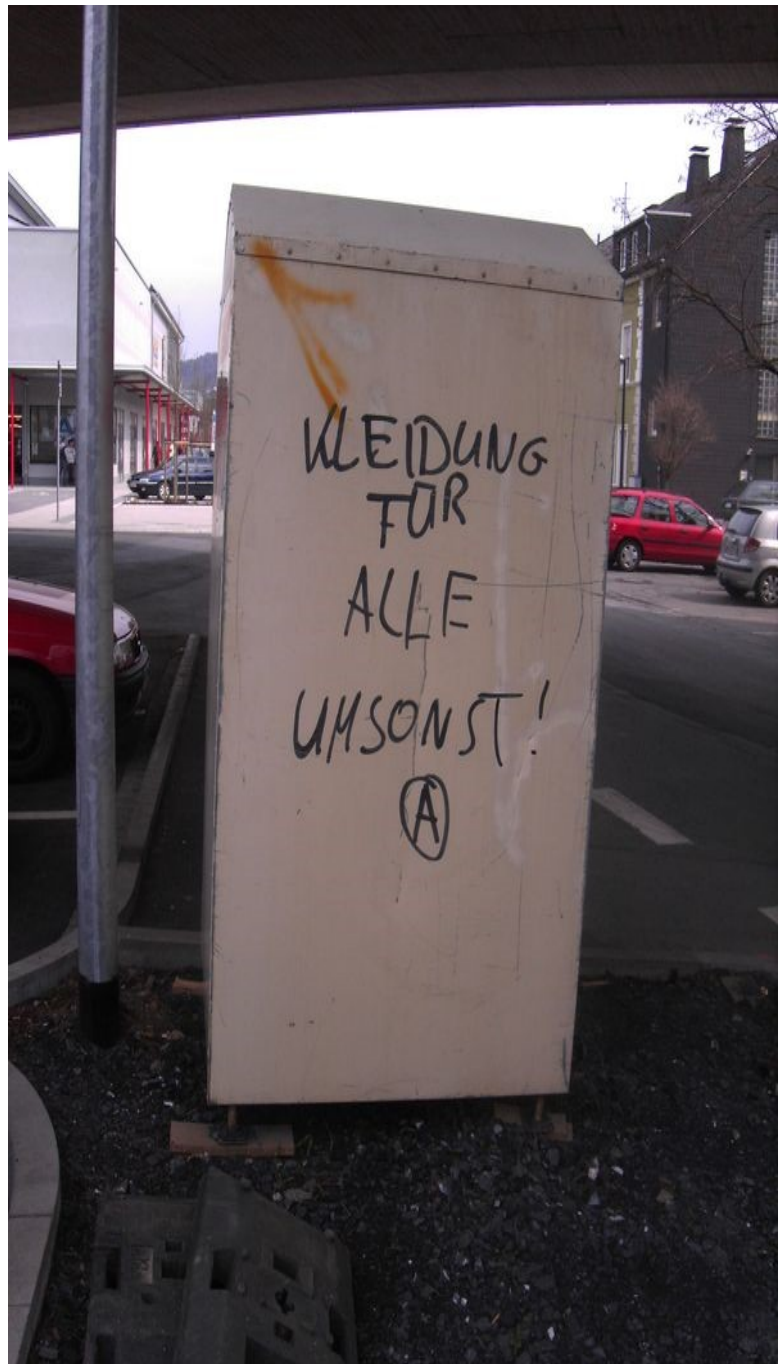 KLEIDUNG
FÜR
ALLE
UMSONST!
Ⓐ